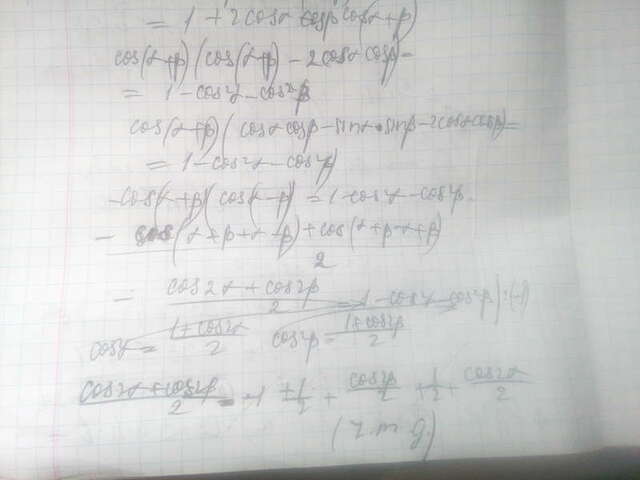 = 1 + 2cosα cosβ cos(α+β)
cos(α+β) (cos(α+β) - 2cosα cosβ) =
= 1 - cos²α - cos²β
cos(α+β) (cosα cosβ - sinα · sinβ - 2cosα cosβ) =
= 1 - cos²α - cos²β)
-cos(α+β) (cos(α-β) = 1 - cos²α - cos²β
- cos(α+β+α-β) + cos(α+β-α+β)
2
- cos2α + cos2β
2
= 1 - cos²α - cos²β) : (-1)
cos²α = 1+cos2α
2
cos²β = 1+cos2β
2
cos2α + cos2β
2
= -1 + 1/2 + cos2β/2 + 1/2 + cos2α/2
(ч.т.д.)